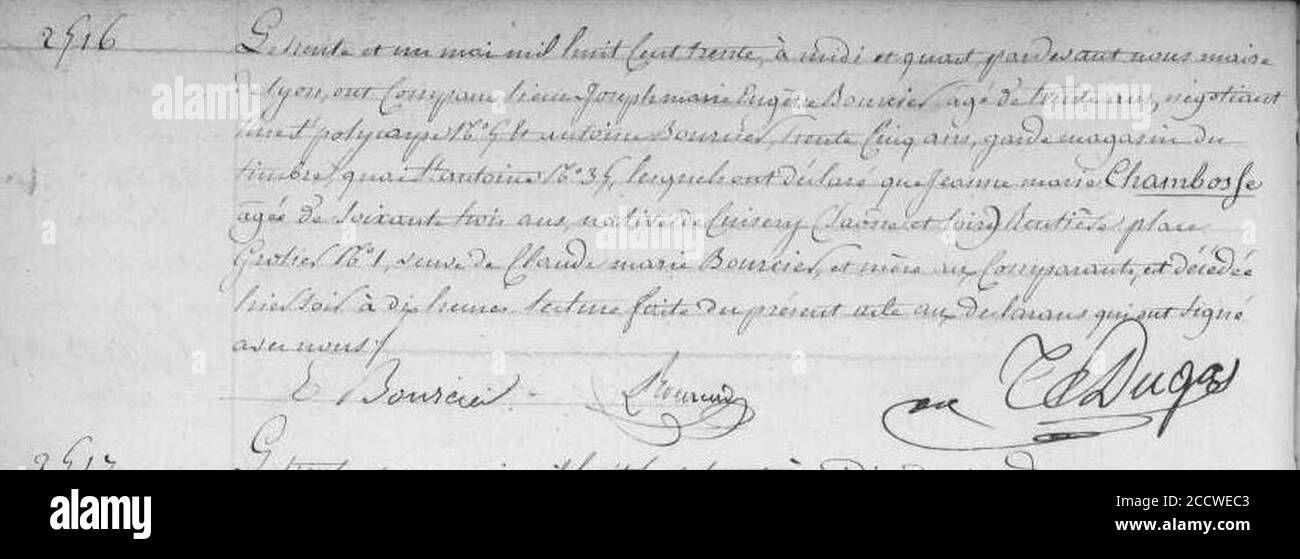 2516
Le trente et un mai mil huit cent trente, à midi et quart, pardevant nous maire
de Lyon, ont comparu Joseph marie Eugène Bourcier, agé de trente ans, négociant
rue St polycarpe No 5 & antoine Bourcier, trente cinq ans, garde magasin du
timbre, quai St antoine No 35, lesquels ont déclaré que Jeanne marie Chambosse
agée de soixante trois ans, native de Cuisery (Saône et Loire) Rentière place
Grolier No 1, veuve de Claude marie Bourcier, et mère aux Comparants, est décédée
hier soir à dix heures. lecture faite du présent acte aux déclarans qui ont signé
avec nous
E Bourcier Bourcier Dugas
2517
alamy
Image ID: 2CCWEC3
www.alamy.com